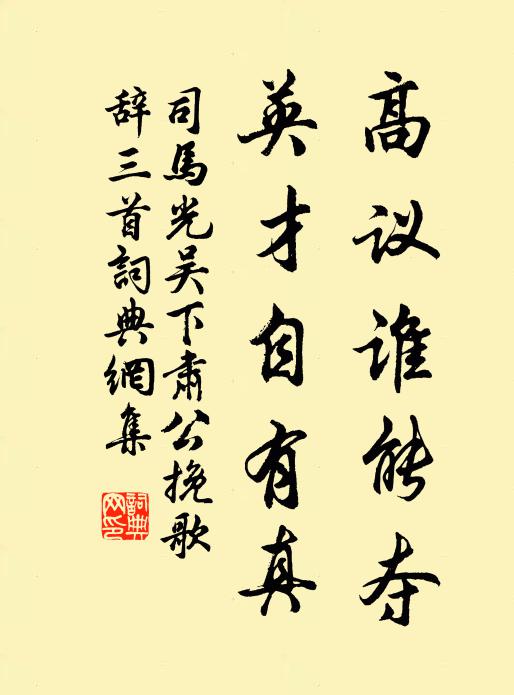 高议谁能夺
英才自有真
司馬光吴下肅公挽歌
辞三首詞典網集
詞典
网印